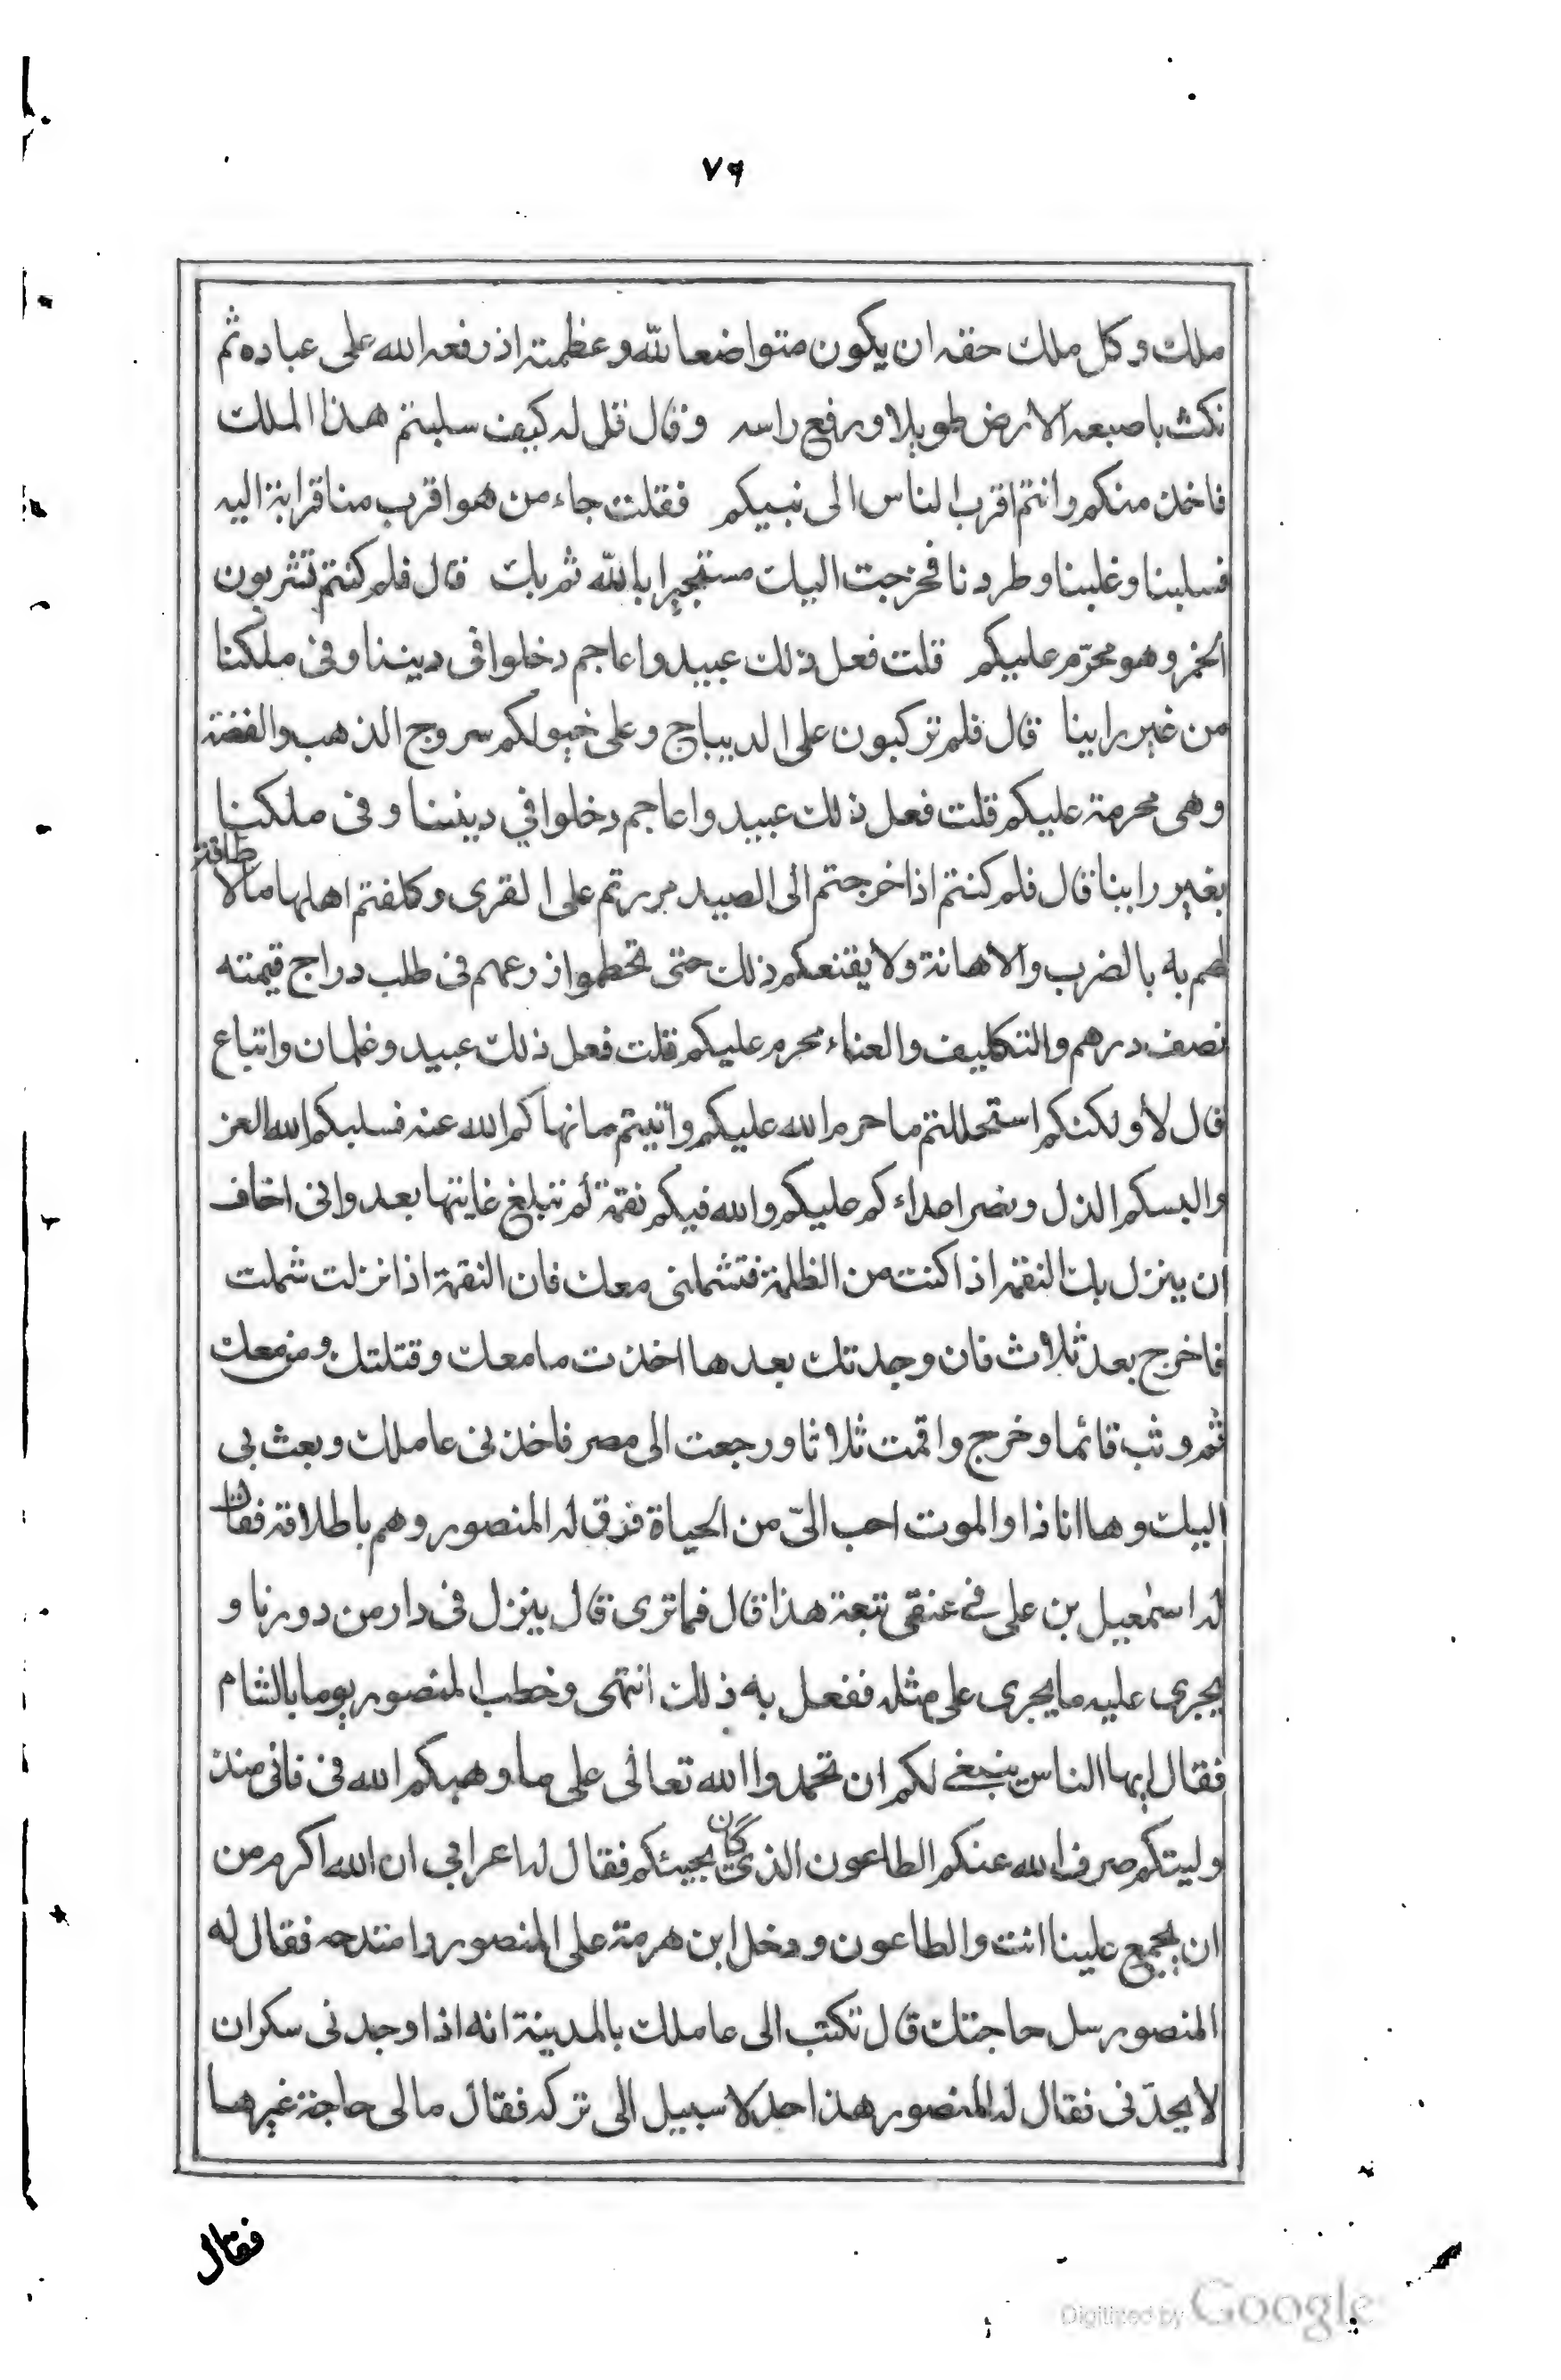 ٧٩
ملك وكل ملك حقه ان يكون متواضعا لله وعظمته اذ رفعه الله على عباده ثم
نكث باصبعه الارض طويلا ورفع راسه وقال قل له كيف سلبتم هذا الملك
فاخذ منكم وانتم اقرب الناس الى نبيكم فقلت جاء من هو اقرب منا قرابة اليه
فسلبنا وغلبنا وطردنا فخرجت اليك مستجيرا بالله ثم بك قال فلم كنتم تشربون
الخمر وهو محرّم عليكم قلت فعل ذلك عبيد واعاجم دخلوا في ديننا وفى ملكنا
من غير راينا قال فلم تركبون على الديباج وعلى خيولكم سروج الذهب والفضة
وهى محرمة عليكم قلت فعل ذلك عبيد واعاجم دخلوا في ديننا وفى ملكنا
بغير راينا قال فلم كنتم اذا خرجتم الى الصيد مررتم على القرى وكلفتم اهلها مالا طاقة
لهم به بالضرب والاهانة ولا يقنعكم ذلك حتى تحطموا زرعهم فى طلب دراج قيمته
نصف درهم والتكليف والعناء محرم عليكم قلت فعل ذلك عبيد وغلمان واتباع
قال لا ولكنكم استحللتم ما حرم الله عليكم واتيتم ما نهاكم الله عنه فسلبكم الله العز
والبسكم الذل ونصر اعداءكم عليكم ولله فيكم نقمة لم تبلغ غايتها بعد وانى اخاف
ان ينزل بك النقمة اذا كنت من الظلمة فتشملنى معك فان النقمة اذا نزلت شملت
فاخرج بعد ثلاث فان وجدتك بعدها اخذت ما معك وقتلتك ومن معك
ثم وثب قائما وخرج واقمت ثلاثا ورجعت الى مصر فاخذنى عاملك وبعث بى
اليك وها انا ذا والموت احب الىّ من الحياة فرق له المنصور وهم باطلاقه فقال
له اسمٰعيل بن على فى عنقى تبعة هذا قال فما ترى قال ينزل فى دار من دورنا و
يجرى عليه ما يجرى على مثله ففعل به ذلك انتهى وخطب المنصور يوما بالشام
فقال ايها الناس ينبغى لكم ان تحمدوا الله تعالى على ما وهبكم الله فى فانى منذ
وليتكم صرف الله عنكم الطاعون الذى كان يجيئكم فقال له اعرابي ان الله اكرم من
ان يجمع علينا انت والطاعون ودخل ابن هرمة على المنصور وامتدحه فقال له
المنصور سل حاجتك قال تكتب الى عاملك بالمدينة انه اذا وجدنى سكران
لا يحدّنى فقال له المنصور هذا حد لا سبيل الى تركه فقال مالى حاجة غيرها
فقال
Digitized by Google